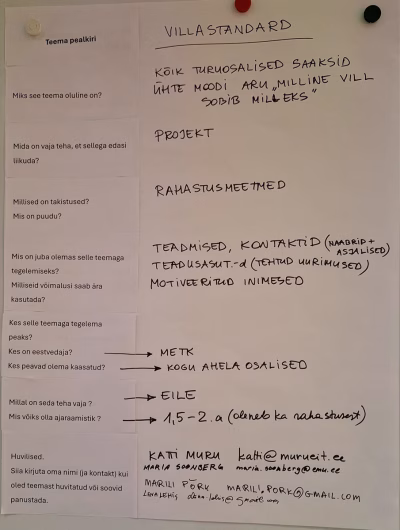 Teema pealkiri
VILLASTANDARD
Miks see teema oluline on?
KÕIK TURUOSALISED SAAKSID
ÜHTE MOODI ARU „MILLINE VILL
SOBIB MILLEKS"
Mida on vaja teha, et sellega edasi
liikuda?
PROJEKT
Millised on takistused?
Mis on puudu?
RAHASTUSMEETMED
Mis on juba olemas selle teemaga
tegelemiseks?
Milliseid võimalusi saab ära
kasutada?
TEADMISED, KONTAKTID (NAABRID +
ASJALISED)
TEADUSASUT.-d (TEHTUD UURIMUSED)
MOTIVEERITUD INIMESED
Kes selle teemaga tegelema
peaks?
Kes on eestvedaja?
METK
Kes peavad olema kaasatud?
KOGU AHELA OSALISED
Millal on seda teha vaja?
EILE
Mis võiks olla ajaraamistik?
1,5-2.a (oleneb ka rahastusest)
Huvilised.
Siia kirjuta oma nimi (ja kontakt) kui
oled teemast huvitatud või soovid
panustada.
KATTI MURU katti@murueit.ee
MARIA SOONBERG maria.soonberg@emu.ee
MARILI PÕRK MARILI.PORK@GMAIL.COM